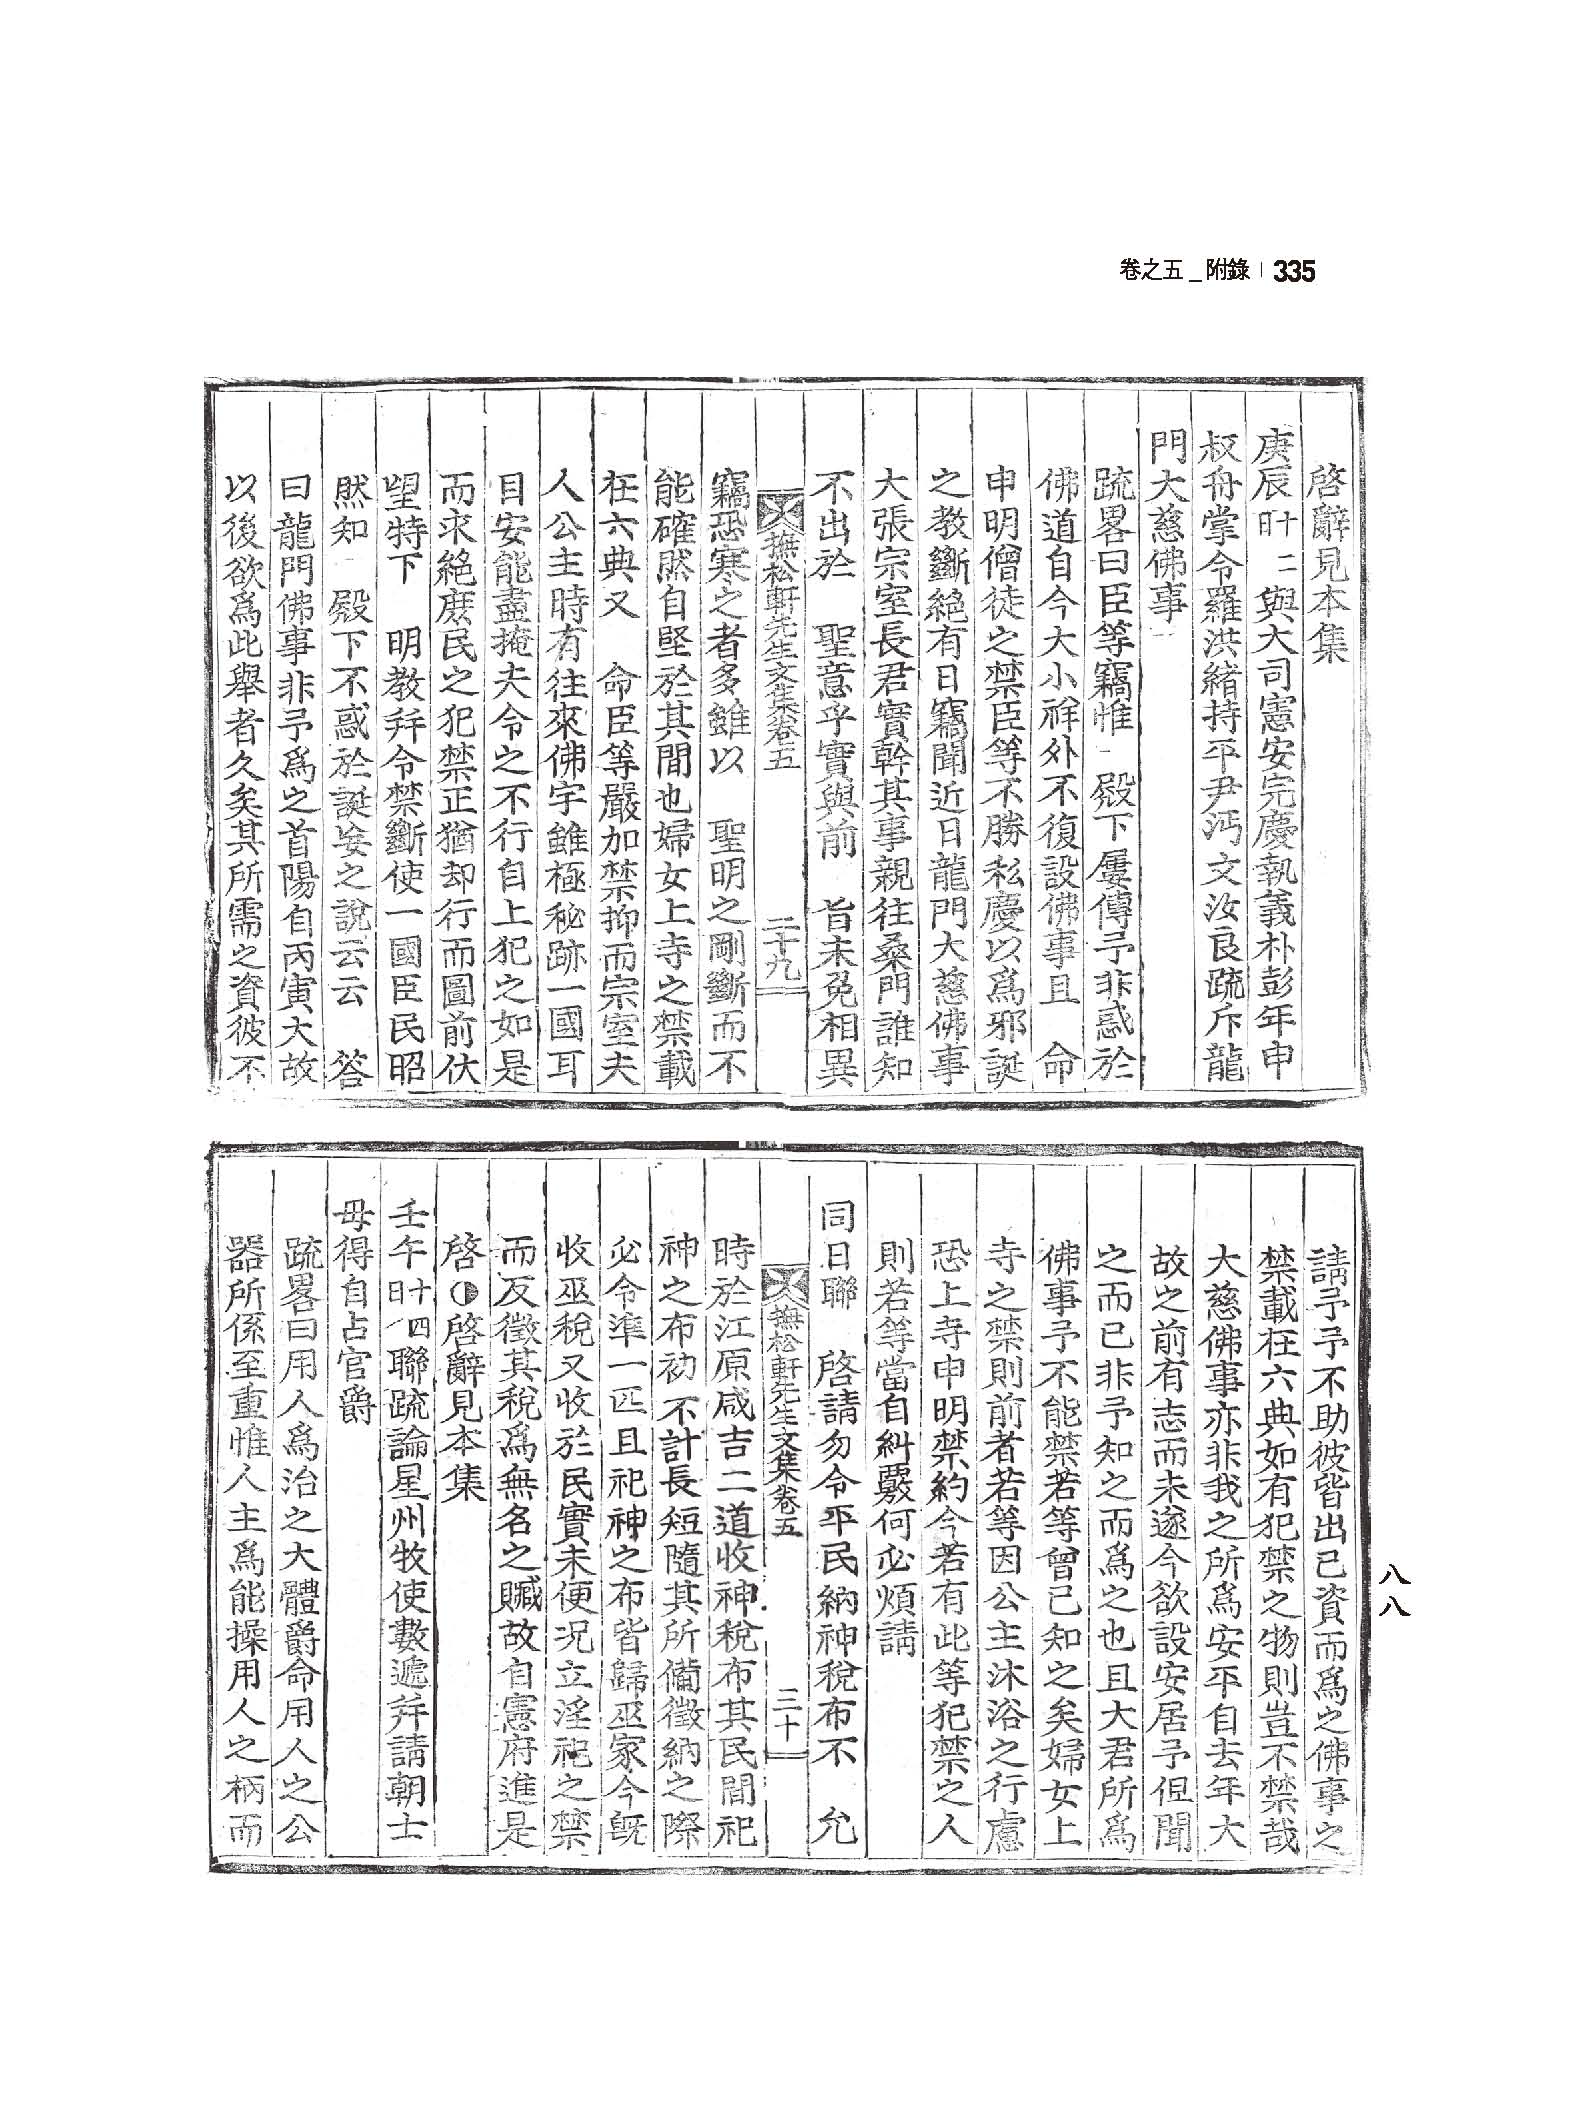 卷之五 _ 附錄 | 335
啓辭見本集
庚辰十二日與大司憲安完慶執義朴彭年申
叔舟掌令羅洪緖持平尹沔文汝良䟽斥龍
門大慈佛事
䟽畧曰臣等竊惟 殿下屢傳予非惑於
佛道自今大小祥外不復設佛事且 命
申明僧徒之禁臣等不勝私慶以爲邪誕
之教斷絶有日竊聞近日龍門大慈佛事
大張宗室長君實幹其事親往桑門誰知
不出於 聖意乎實與前 旨未免相異
撫松軒先生文集卷五 二十九
竊恐寒之者多雖以 聖明之剛斷而不
能確然自堅於其間也婦女上寺之禁載
在六典又 命臣等嚴加禁抑而宗室夫
人公主時有往來佛宇雖極秘跡一國耳
目安能盡掩夫令之不行自上犯之如是
而求絶庶民之犯禁正猶却行而圖前伏
望特下 明教幷令禁斷使一國臣民昭
然知 殿下不惑於誕妄之說云云 答
曰龍門佛事非予爲之首陽自丙寅大故
以後欲爲此擧者久矣其所需之資彼不
請予予不助彼皆出己資而爲之佛事之
禁載在六典如有犯禁之物則豈不禁哉
大慈佛事亦非我之所爲安平自去年大
故之前有志而未遂今欲設安居予但聞
之而已非予知之而爲之也且大君所爲
佛事予不能禁若等曾已知之矣婦女上
寺之禁則前者若等因公主沐浴之行慮
恐上寺申明禁約今若有此等犯禁之人
則若等當自糾覈何必煩請
同日聯 啓請勿令平民納神稅布不 允
撫松軒先生文集卷五 三十
時於江原咸吉二道收神稅布其民間祀
神之布初不計長短隨其所備徵納之際
必令準一匹且祀神之布皆歸巫家今旣
收巫稅又收於民實未便况立淫祀之禁
而反徵其稅爲無名之贓故自憲府進是
啓◐啓辭見本集
壬午十四日聯䟽論星州牧使數遞幷請朝士
毋得自占官爵
䟽畧曰用人爲治之大體爵命用人之公
器所係至重惟人主爲能操用人之柄而
八八